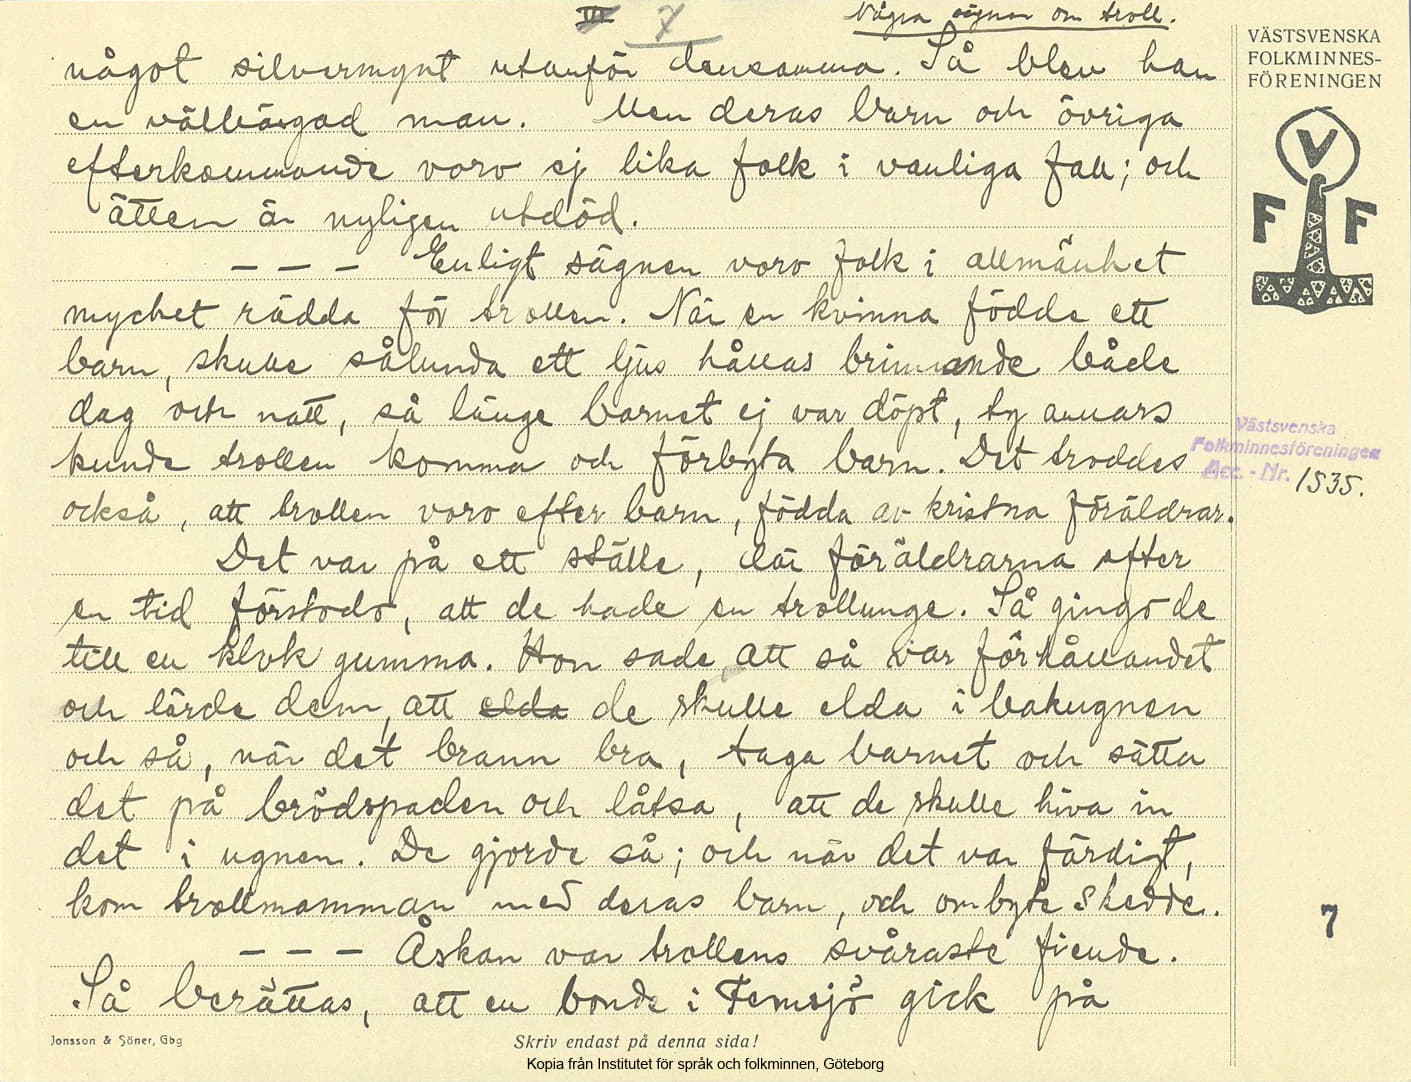 VI 7 Några sägner om troll.
något silvermynt utanför densamma. Så blev han
en välbärgad man. Men deras barn och övriga
efterkommande voro ej lika folk i vanliga fall; och
ätten är nyligen utdöd.
– – – Enligt sägnen voro folk i allmänhet
mycket rädda för trollen. När en kvinna födde ett
barn, skulle sålunda ett ljus hållas brinnande både
dag och natt, så länge barnet ej var döpt, ty annars
kunde trollen komma och förbyta barn. Det troddes
också, att trollen voro efter barn, födda av kristna föräldrar.
Det var på ett ställe, där föräldrarna efter
en tid förstodo, att de hade en trollunge. Så gingo de
till en klok gumma. Hon sade, att så var förhållandet
och lärde dem, att elda de skulle elda i bakugnen
och så, när det brann bra, taga barnet och sätta
det på brödspaden och låtsa, att de skulle hiva in
det i ugnen. De gjorde så; och när det var färdigt,
kom trollmamman med deras barn, och ombyte skedde.
– – – Åskan var trollens svåraste fiende.
Så berättas, att en bonde i Femsjö gick på
VÄSTSVENSKA
FOLKMINNES-
FÖRENINGEN
V
F F
Västsvenska
Folkminnesföreningen
Acc.-Nr. 1535.
7
Jonsson & Söner, Gbg
Skriv endast på denna sida!
Kopia från Institutet för språk och folkminnen, Göteborg